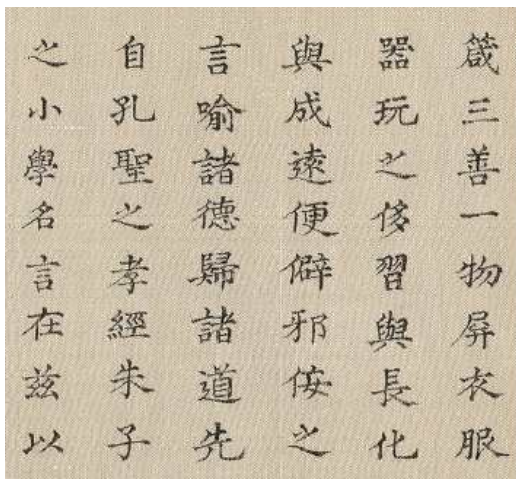 箴三善一物屏衣服
器玩之侈習與長化
與成遠便僻邪佞之
言喻諸德歸諸道先
自孔聖之孝經朱子
之小學名言在茲以